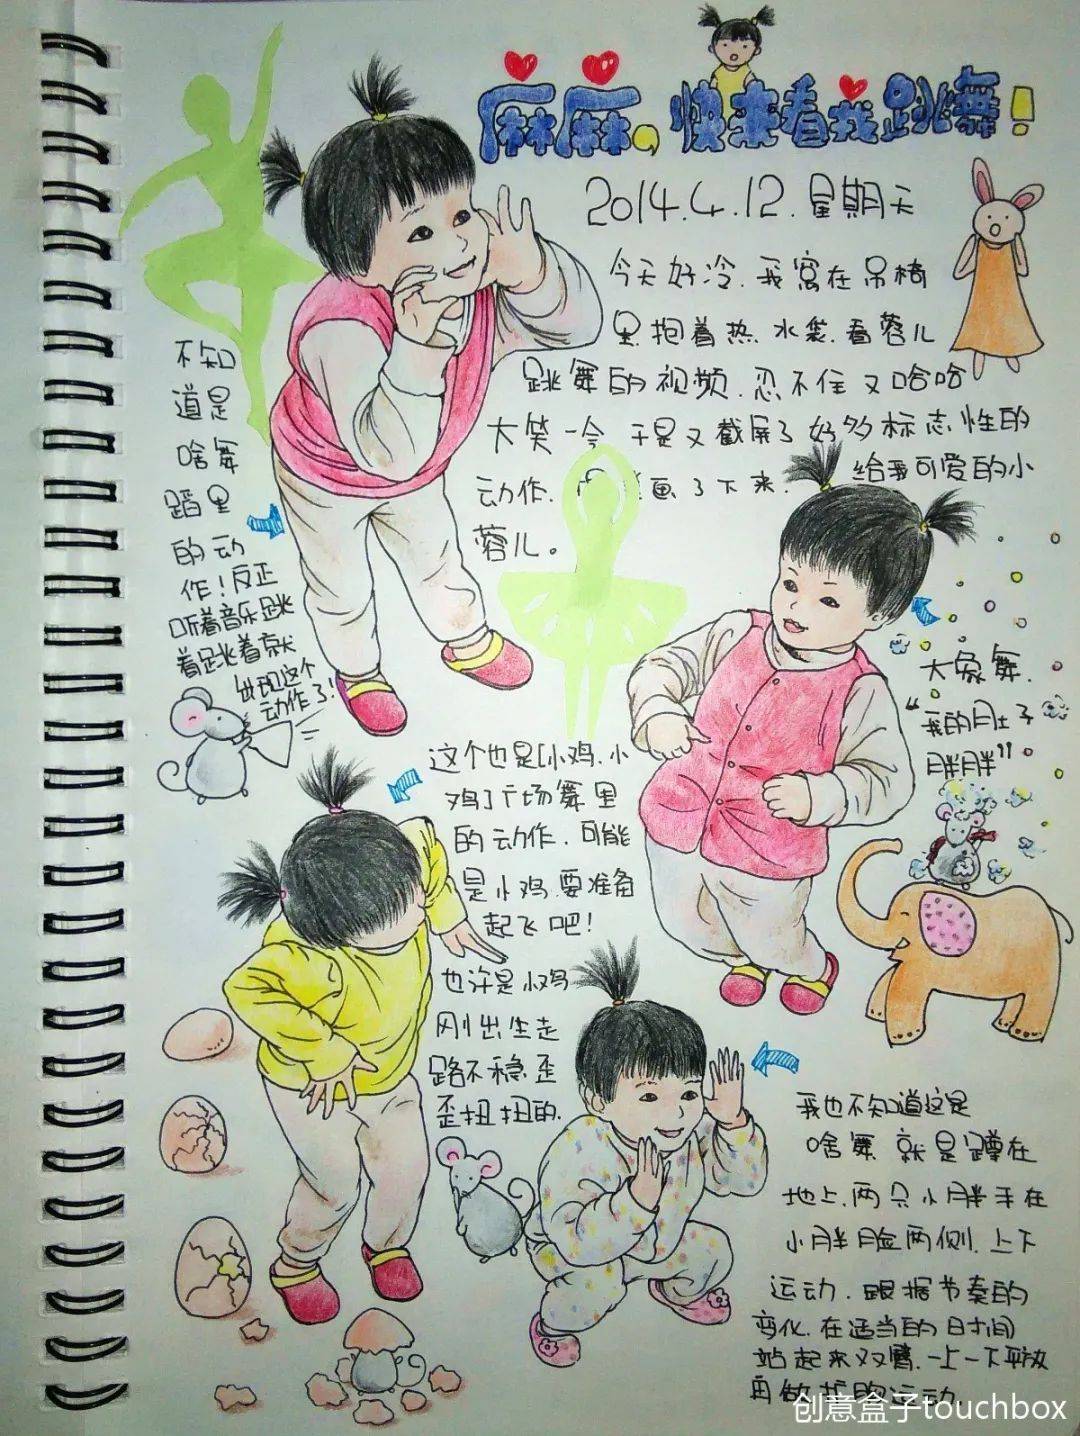 麻麻,快来看我跳舞!
2014.4.12.星期天
今天好冷.我窝在吊椅
里.抱着热.水袋.看蓉儿
跳舞的视频.忍不住又哈哈
大笑一会 于是又截屏了好多标志性的
动作. 画了下来. 给我可爱的小
蓉儿。
不知
道是
啥舞
蹈里
的动
作!反正
听着音乐跳
着跳着就
出现这个
动作了!
大象舞.
“我的肚子
胖胖”
这个也是[小鸡.小
鸡]广场舞里
的动作.可能
是小鸡.要准备
起飞吧!
也许是小鸡
刚出生走
路不稳.歪
歪扭扭的.
我也不知道这是
啥舞 就是蹲在
地上.两只小胖手在
小胖脸两侧.上下
运动.跟据节奏的
变化.在适当的时间
站起来双臂.一上一下平放
再做扩胸运动.
创意盒子touchbox